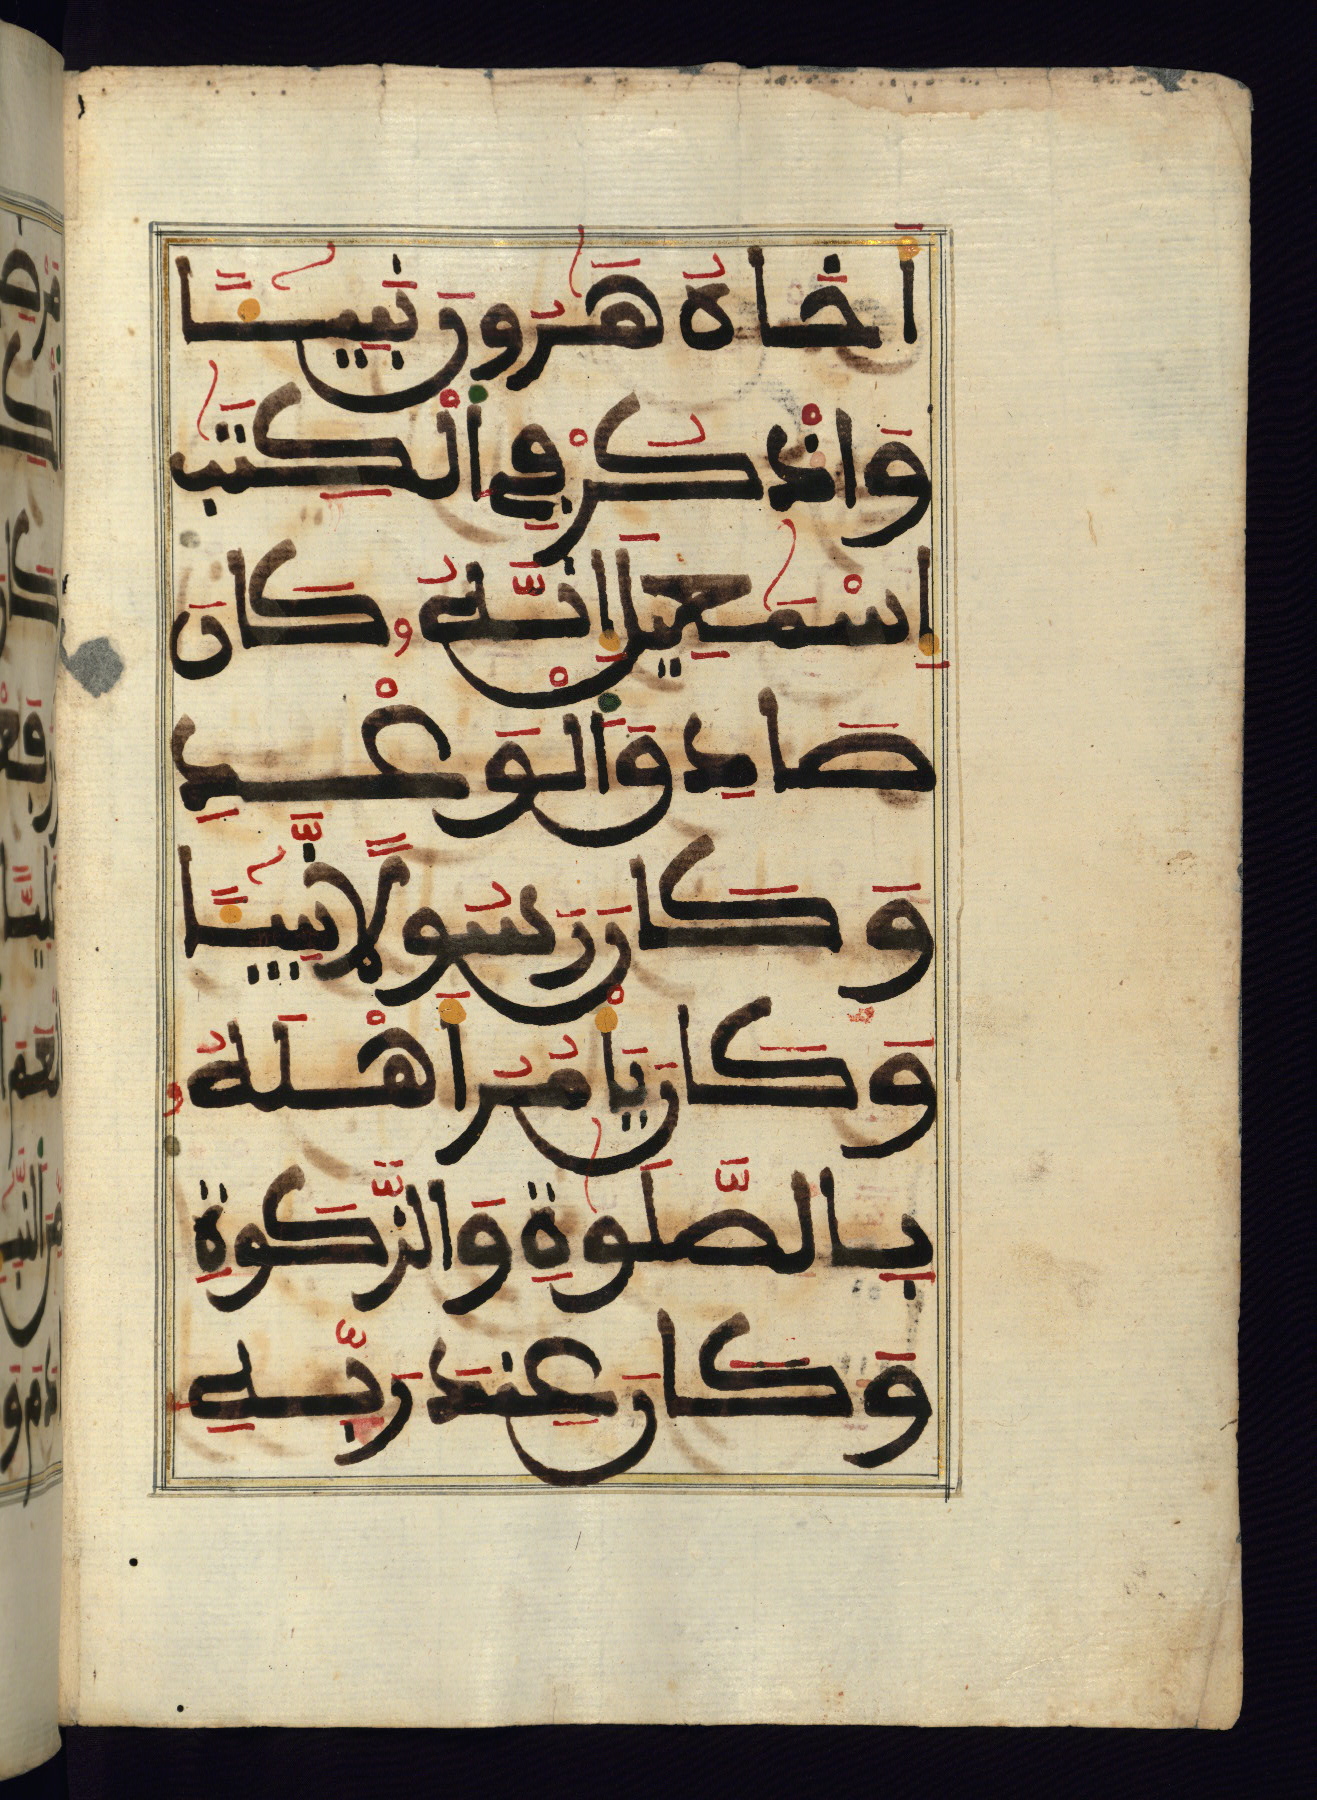 أَخَاهُ هَٰرُونَ نَبِيـًٔا
وَاذْكُرْ فِي اِ۬لْكِتَٰبِ
إِسْمَٰعِيلَ إِنَّهُۥ كَانَ
صَادِقَ اَ۬لْوَعْدِ
وَكَانَ رَسُولًا نَّبِيـًٔا
وَكَانَ يَأْمُرُ أَهْلَهُۥ
بِالصَّلَوٰةِ وَالزَّكَوٰةِ
وَكَانَ عِندَ رَبِّهِۦ